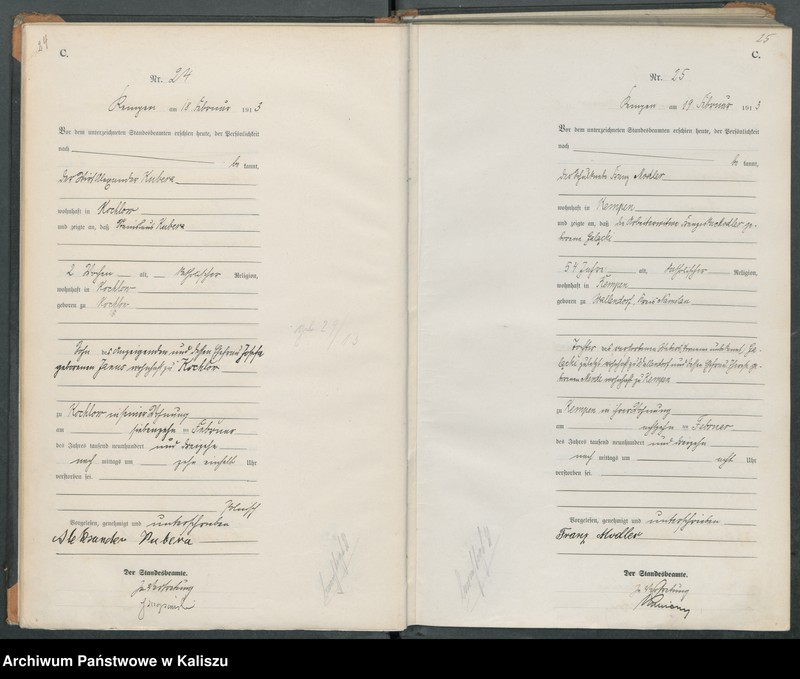 24
C.
Nr. 24
Kempen am 18. Februar 1913
Vor dem unterzeichneten Standesbeamten erschien heute, der Persönlichkeit
nach
be kannt,
der Wirt Alexander Kubera
wohnhaft in Kochlow
und zeigte an, daß Stanislaus Kubera
2 Wochen alt, katholischer Religion,
wohnhaft in Kochlow
geboren zu Kochlow
Sohn des Anzeigenden und dessen Ehefrau Josefa
geborenen Janus wohnhaft zu Kochlow
zu Kochlow in seiner Wohnung
am siebzehn ten Februar
des Jahres tausend neunhundert und dreizehn
nach mittags um zehn einhalb Uhr
verstorben sei.
Vorgelesen, genehmigt und unterschrieben
Aleksander Kubera
Der Standesbeamte.
In Vertretung
25
C.
Nr. 25
Kempen am 19 Februar 1913
Vor dem unterzeichneten Standesbeamten erschien heute, der Persönlichkeit
nach
be kannt,
der Franz Modler
wohnhaft in Kempen
und zeigte an, daß die Arbeiterwitwe Modler ge-
borene
54 Jahre alt, katholischer Religion,
wohnhaft in Kempen
geboren zu Wallendorf, Kreis Namslau
Tochter des verstorbenen
zuletzt wohnhaft zu Wallendorf und dessen Ehefrau ge-
borenen wohnhaft zu Kempen
zu Kempen in ihrer Wohnung
am achtzehn ten Februar
des Jahres tausend neunhundert und dreizehn
nach mittags um acht Uhr
verstorben sei.
Vorgelesen, genehmigt und unterschrieben
Franz Modler
Der Standesbeamte.
In Vertretung
Archiwum Państwowe w Kaliszu